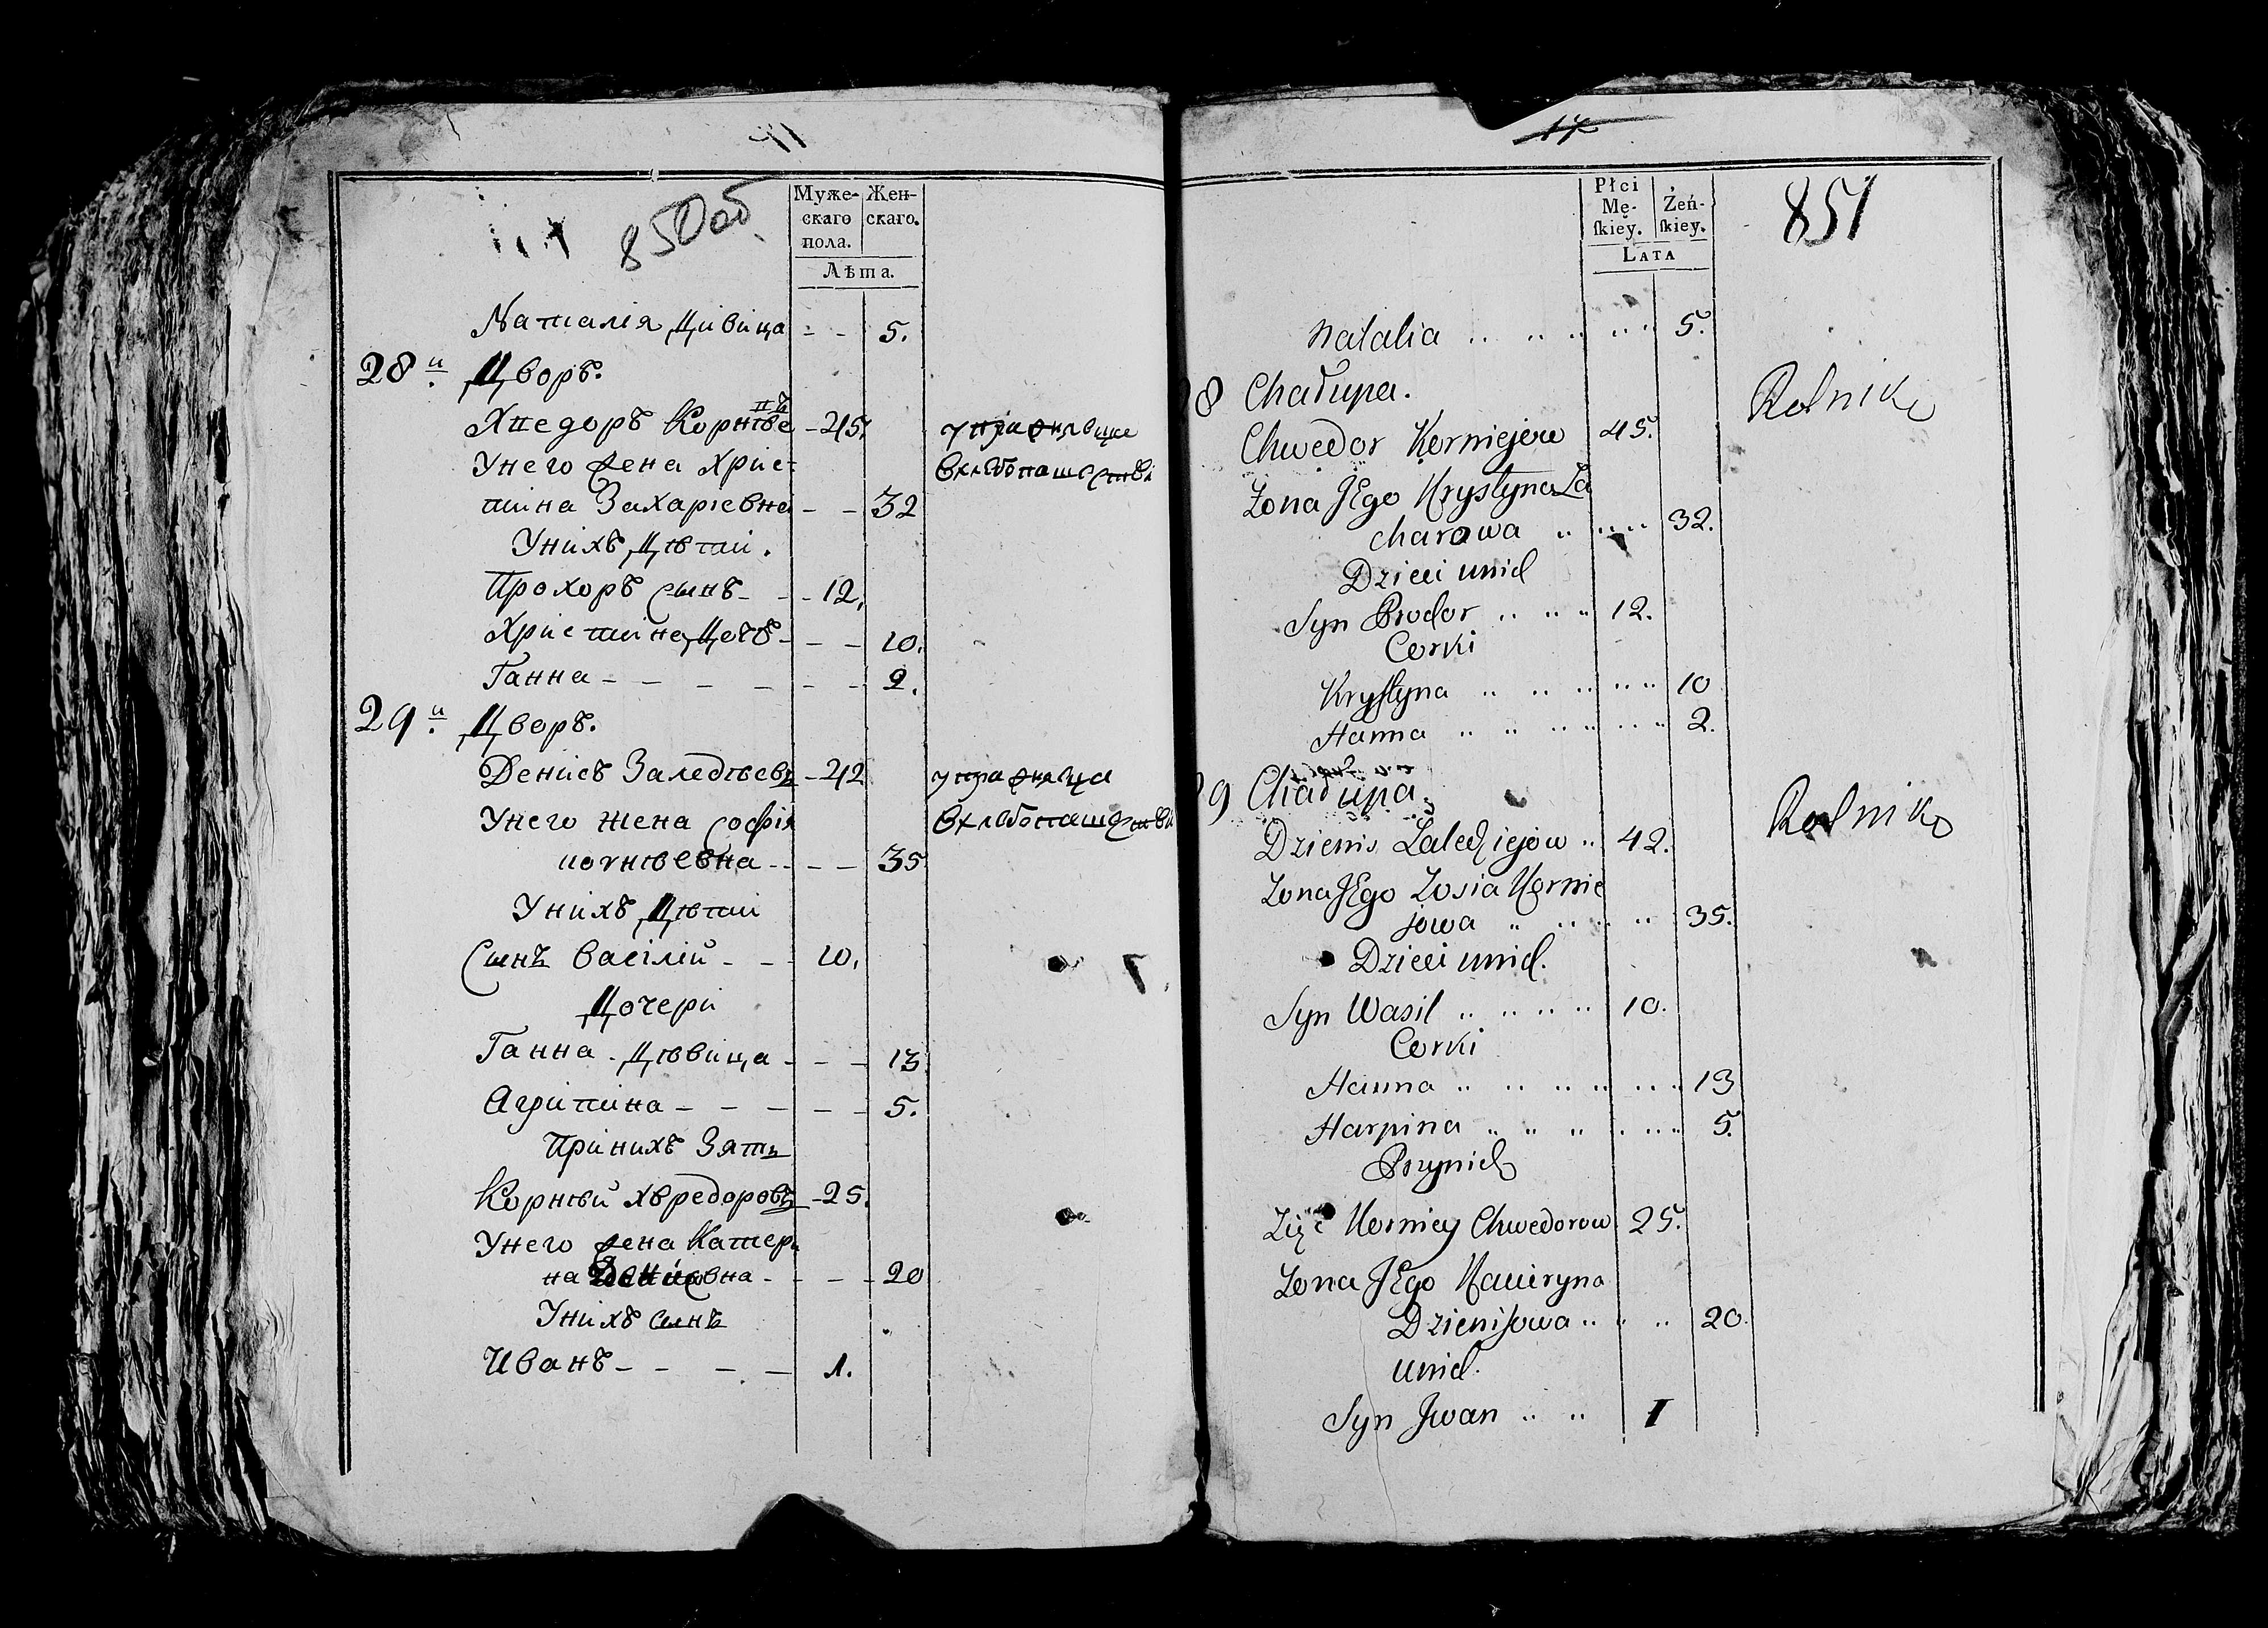 850об
Муже-
скаго
пола.
Жен-
скаго.
Лѣта.
Наталія Дивица - - 5.
28й Дворъ.
Хведоръ Корнѣевъ - 45.
упражняэца
Унего жена Хрис-
вхлѣбопашествѣ
тіна Захаріевна - - 32
Унихъ Дѣтий.
Прохоръ сынъ - - 12.
Христина Дочъ - - - 10.
Ганна - - - - - - 2.
29й Дворъ.
Денисъ Заледѣевъ - 42
упражняэца
Унего жена Софія
вхлѣбопашествѣ
корнѣевна - - - - 35
Унихъ Дѣтий
Сынъ Васілій - - - 10.
Дочери
Ганна Дѣвица - - - 13
Агріпина - - - - - 5.
Прінихъ Зять
Корнѣй Хведоровъ - 25.
Унего жена Катери
на Денісовна - - - - 20
Унихъ сынъ
Иванъ - - - - 1.
17
851
Płci
Mę-
ſkiey.
Żeń-
ſkiey.
LATA
Natalia .. .. .. .. .. 5.
8 Chałupa.
Rolnik
Chwedor Korniejew 45.
Żona JEgo Krystyna Za
charowa .. .. .. 32.
Dzieci unich
Syn Prochor .. .. .. 12.
Corki
Krystyna .. .. .. .. .. 10
Hanna .. .. .. .. .. .. 2.
9 Chałupa.
Rolnik
Dzienis Zaledziejow .. 42.
Żona JEgo Zosia Kornie
jowa .. .. .. .. 35.
Dzieci unich.
Syn Wasil .. .. .. .. 10.
Corki
Hanna .. .. .. .. .. .. 13
Harpina .. .. .. .. .. 5.
Przynich
Zięc Korniey Chwedorow 25.
Żona JEgo Kacieryna
Dzienisowa .. .. .. 20.
unich.
Syn Jwan .. .. I